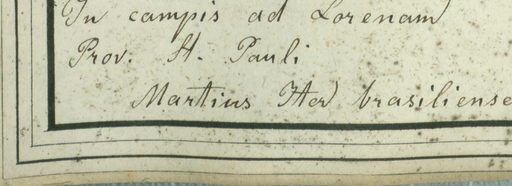 In campis ad Lorenam
Prov. St. Pauli
Martius Iter brasiliense